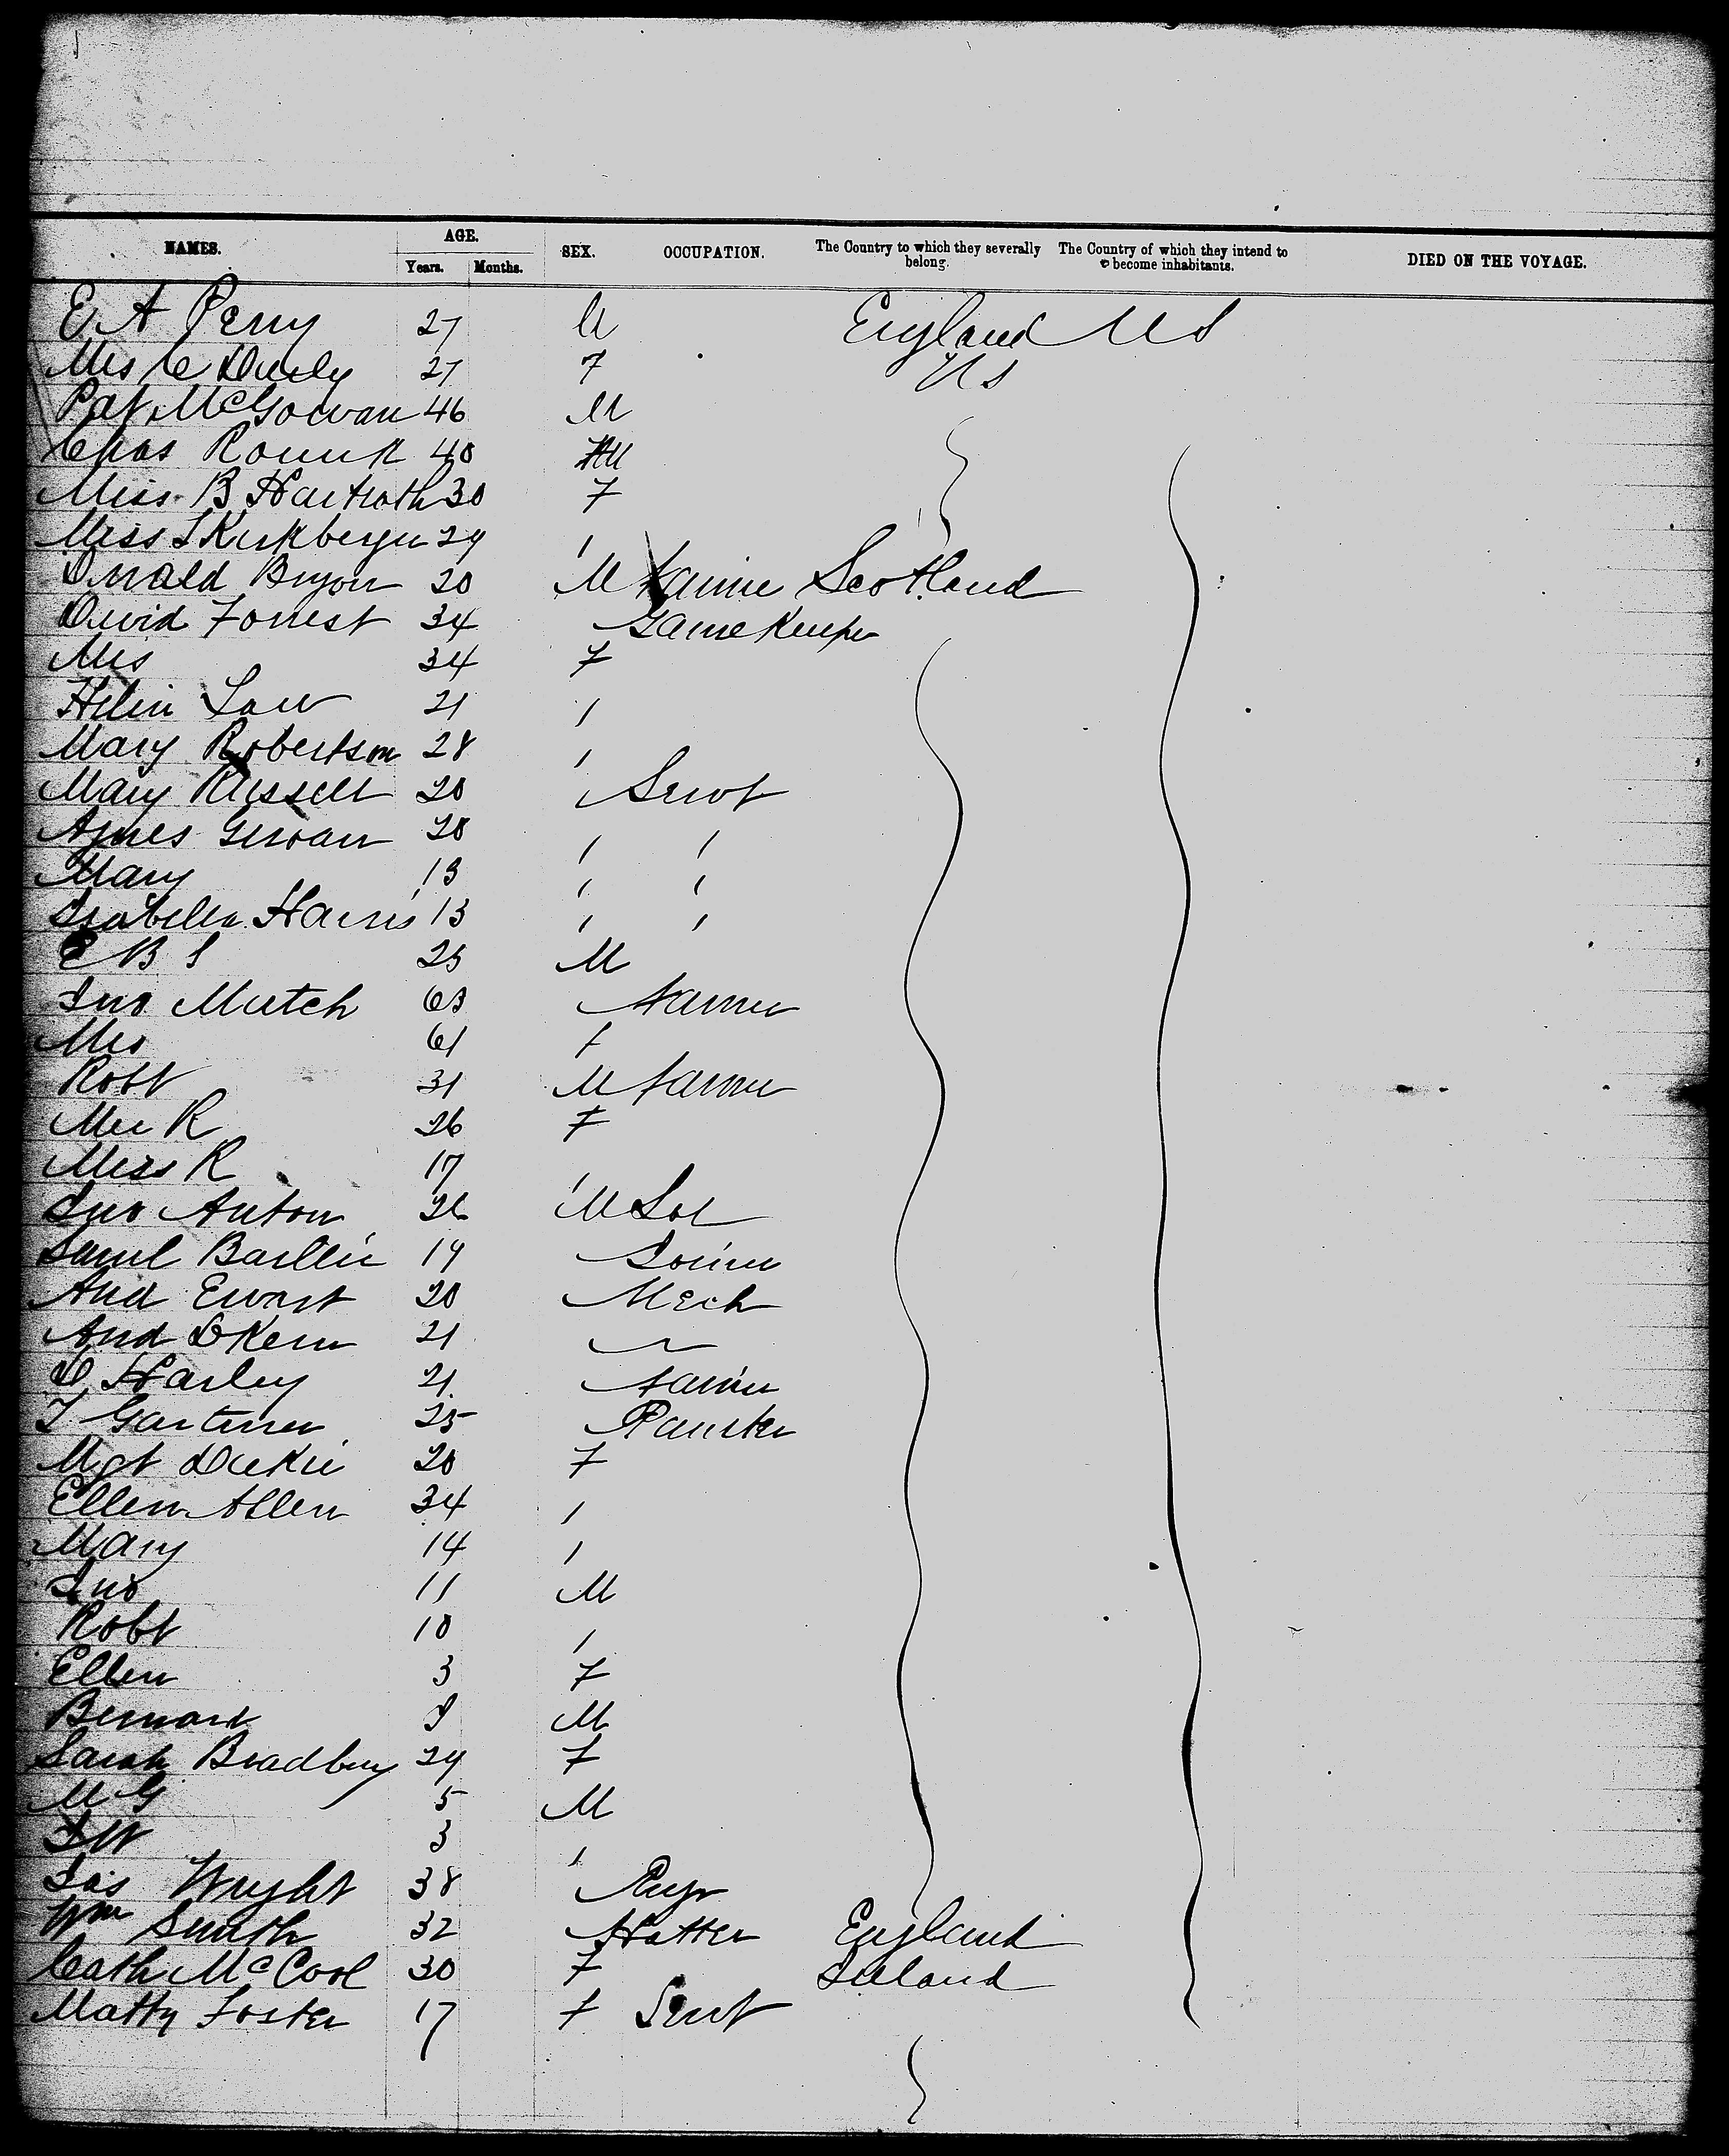 NAMES. AGE. SEX. OCCUPATION. The Country to which they severally belong. The Country of which they intend to become inhabitants. DIED ON THE VOYAGE.
Years. Months.
E A Perry 27 M England US
Mrs C 27 F US
Pat McGowan 46 M
Chas 40 M
Miss B 30 F
Miss 29 "
Donald Bryon 20 M Farmer Scotland
David Forrest 34 Game Keeper
Mrs 34 F
Helen Law 21 "
Mary Robertson 28 "
Mary Russell 20 " Servt
Agnes 20 " "
Mary 13 " "
Isabella Harris 13 " "
E B S 25 M
Jno Mutch 63 Farmer
Mrs 61 F
Robt 31 M Farmer
Mrs R 26 F
Miss R 17 "
Jno Anton 26 M
Saml 19 Joiner
And Ewart 20 Mech
And 21 "
D Harley 21 Farmer
T 25 Painter
Mgt 20 F
Ellen Allen 34 "
Mary 14 "
Jno 11 M
Robt 10 "
Ellen 3 F
Bernard M
Sarah Bradbury 29 F
M G 5 M
3 "
Jas Wright 38
Wm Smith 32 Hatter England
Cath McCool 30 F Ireland
Matty Foster 17 F Servt